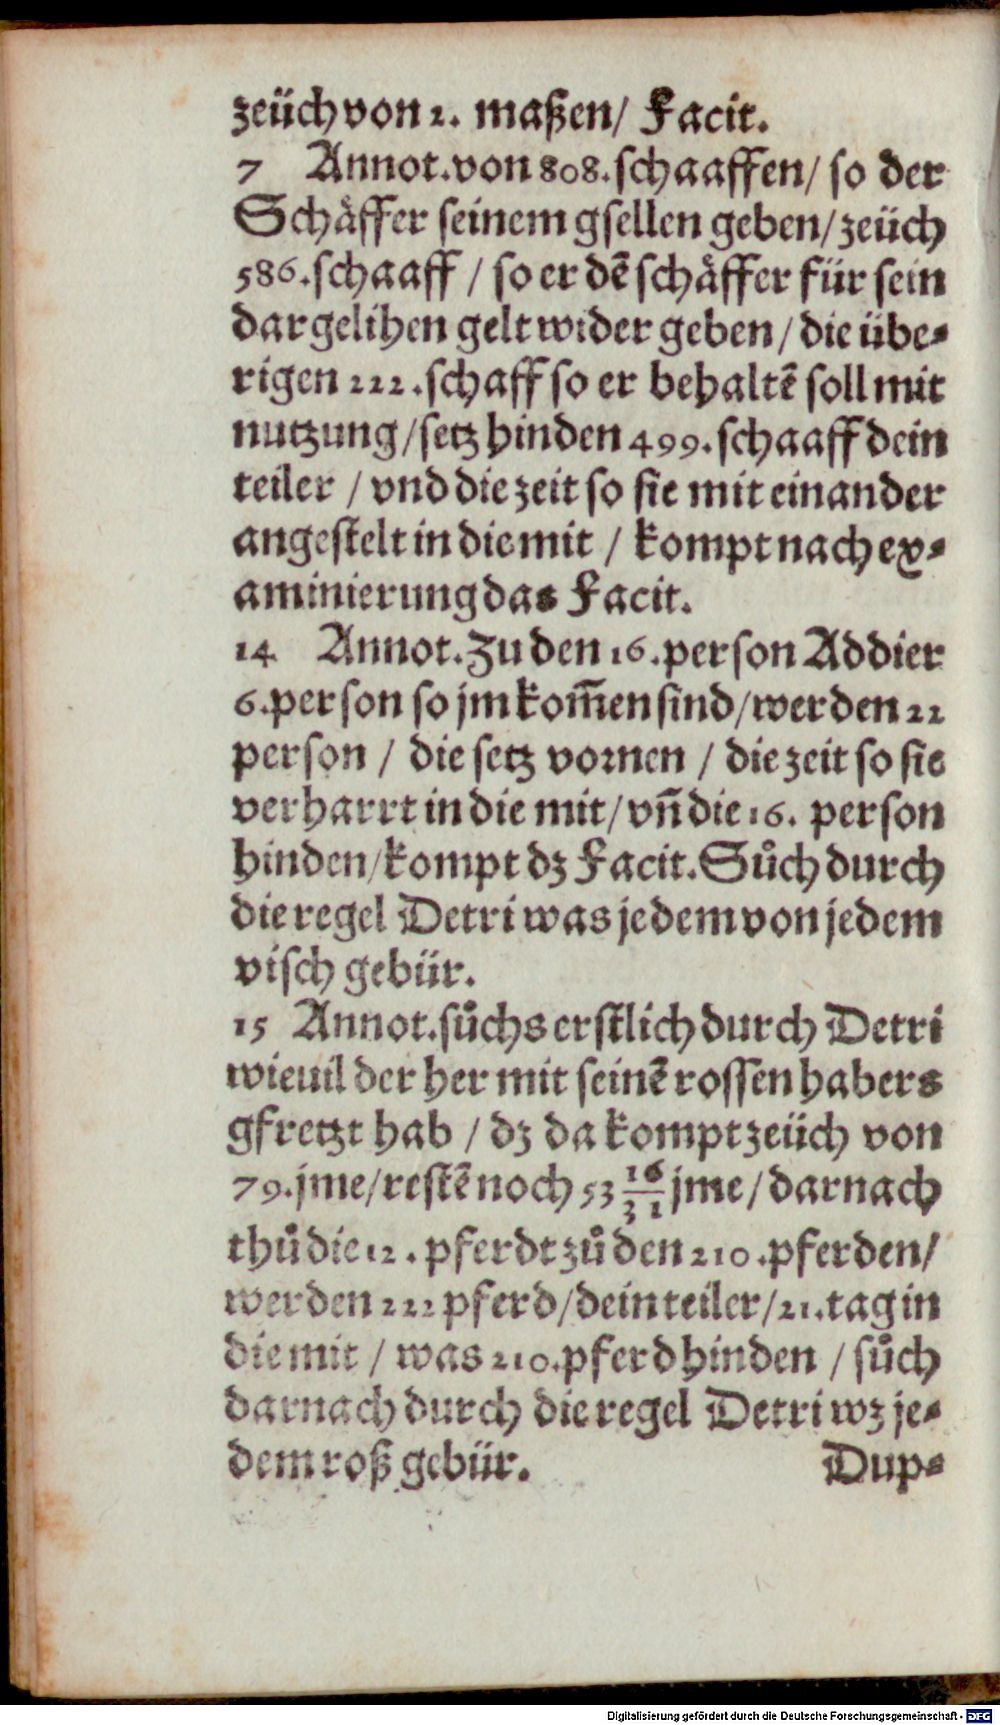 zeüch von 2. maßen/ Facit.
7 Annot. von 808. schaaffen/ so der
Schåffer seinem gsellen geben/ zeüch
586. schaaff / so er dē schåffer für sein
dargelihen gelt wider geben/ die übe⸗
rigen 222. schaff so er behaltē soll mit
nutzung/ setz hinden 499. schaaff dein
teiler / vnd die zeit so sie mit einander
angestelt in die mit / kompt nach ex⸗
aminierung das Facit.
14 Annot. Zu den 16. person Addier
6. person so jm kom̄en sind/ werden 22
person / die setz vornen / die zeit so sie
verharrt in die mit/ vn̄ die 16. person
hinden/ kompt dz Facit. Sůch durch
die regel Detri was jedem von jedem
visch gebür.
15 Annot. sůchs erstlich durch Detri
wieuil der her mit seinē rossen habers
gfretzt hab / dz da kompt zeüch von
79. jme/ restē noch 53 16/31 jme/ darnach
thů die 12. pferdt zů den 210. pferden/
werden 222 pferd/ dein teiler/ 21. tag in
die mit / was 210. pferd hinden / sůch
darnach durch die regel Detri wz je⸗
dem roß gebür. Dup⸗
Digitalisierung gefördert durch die Deutsche Forschungsgemeinschaft - DFG